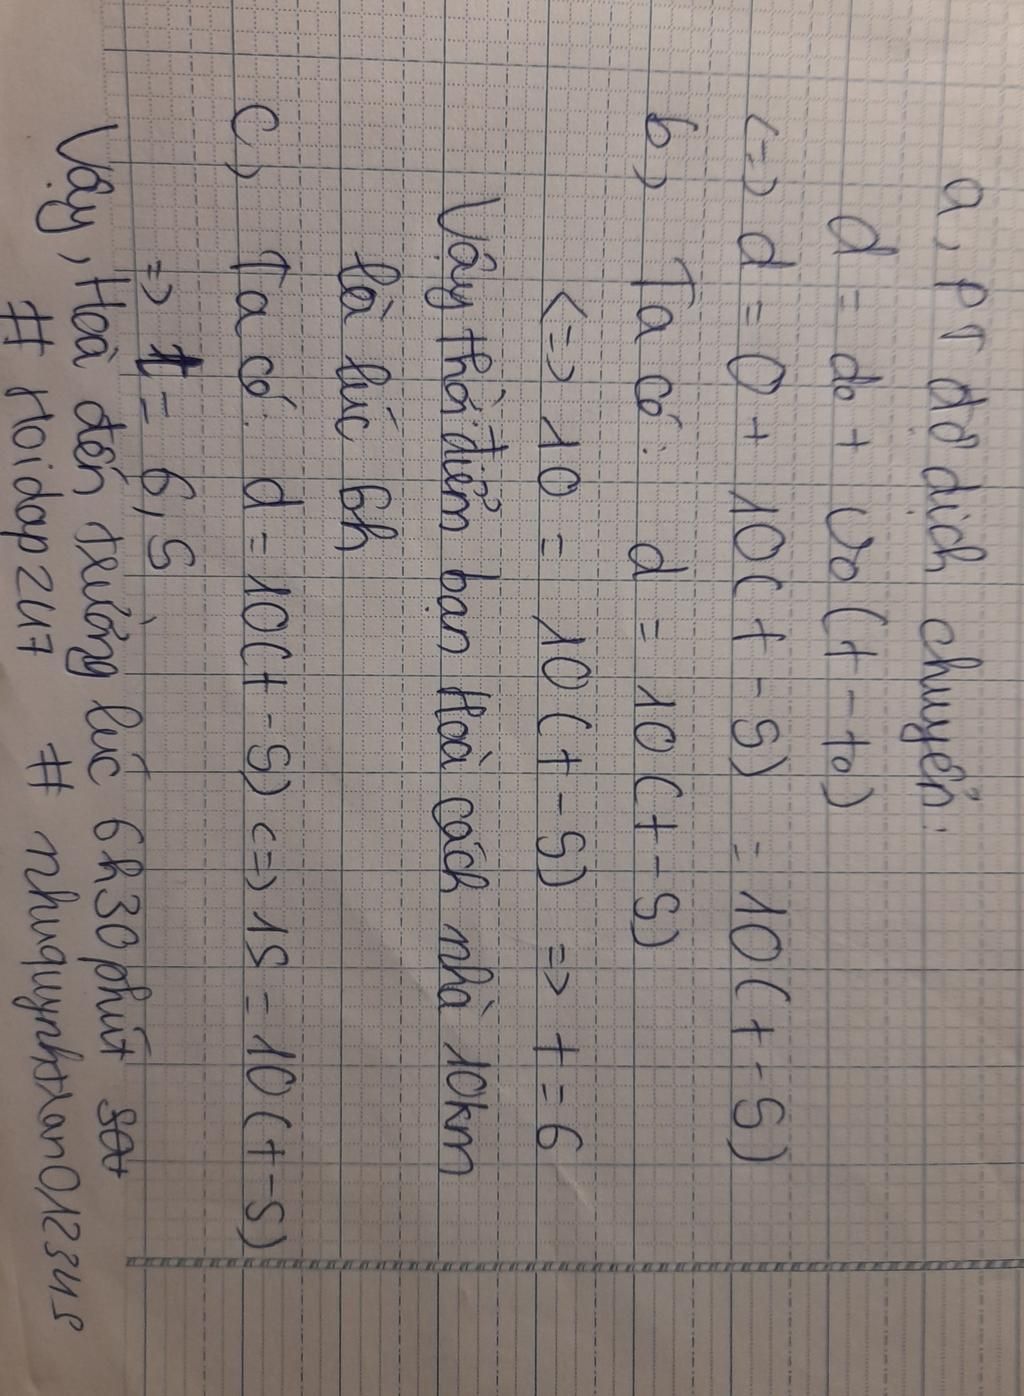 a, PT độ dịch chuyển:
d = d₀ + v₀ (t - t₀)
<=> d = 0 + 10(t - 5) = 10(t - 5)
b, Ta có: d = 10(t - 5)
<=> 10 = 10(t - 5) => t = 6
Vậy thời điểm bạn Hoà cách nhà 10km
là lúc 6h
c, Ta có: d = 10(t - 5) <=> 15 = 10(t - 5)
=> t = 6,5
Vậy, Hoà đến trường lúc 6h30 phút
# Hoidap247 # nhuquynhtran012345